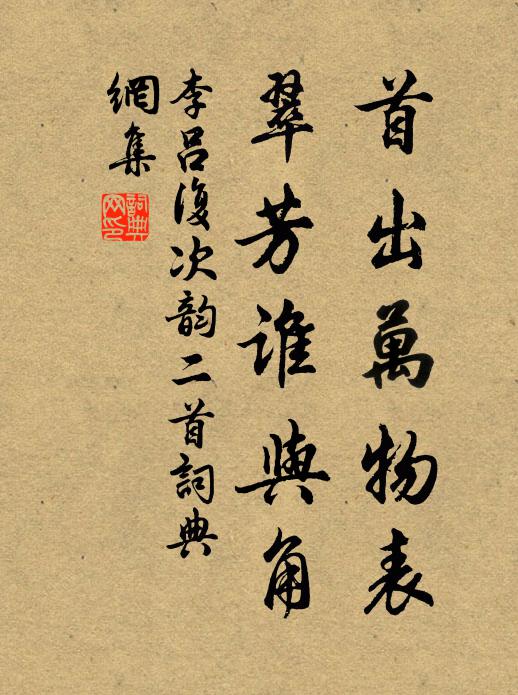 首出萬物表
翠芳誰與角
李呂復次韵二首詞典
網集
詞典
网印